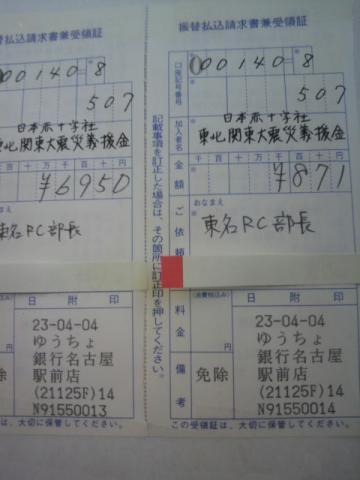 振替払込請求書兼受領証
00140=8
507
日本赤十字社
東北関東大震災義援金
千百十万千百十円
¥6950
おなまえ
東名RC部長
日附印
23-04-04
ゆうちょ
銀行名古屋
駅前店
(21125F)14
N91550013
免除
円
は、大切に保管してください。
記載事項を訂正した場合は、その箇所に訂正印を押してください。
振替払込請求書兼受領証
口座記号番号
00140=8
507
加入者名
日本赤十字社
東北関東大震災義援金
金額
千百十万千百十円
¥871
ご依頼
おなまえ
東名RC部長
料金
(消費税込み)
円
備考
免除
日附印
23-04-04
ゆうちょ
銀行名古屋
駅前店
(21125F)14
N91550014
この受領証は、大切に保管してください。